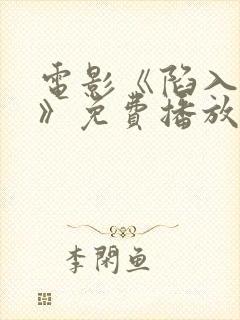 電影《陷入
》免費播放
李閑魚